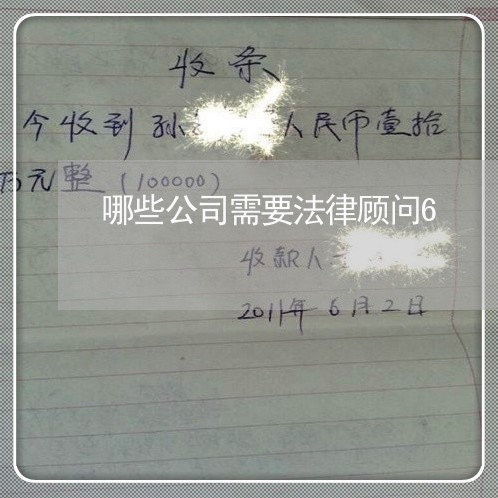 收条
今收到孙 人民币壹拾
万元整（100000）
哪些公司需要法律顾问6
收款人
2011年6月2日